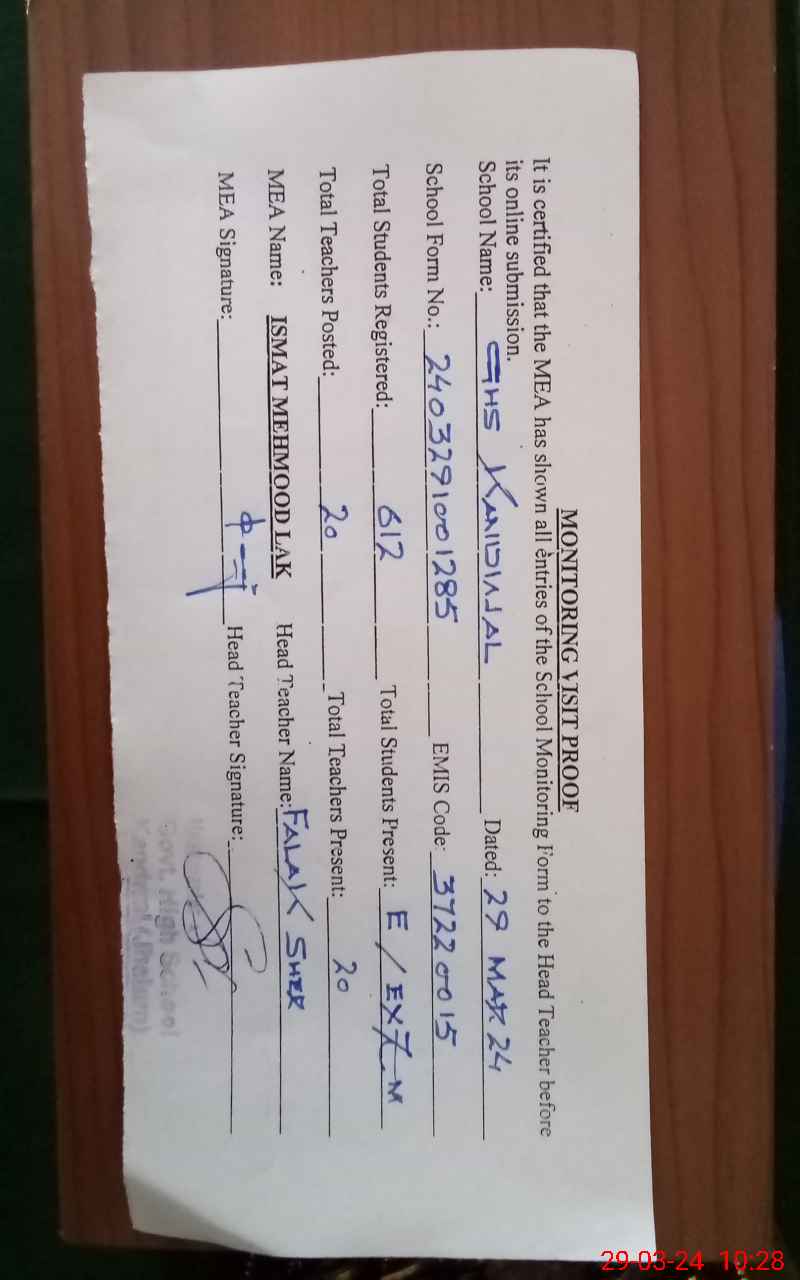 MONITORING VISIT PROOF
It is certified that the MEA has shown all entries of the School Monitoring Form to the Head Teacher before
its online submission.
School Name: GHS KANDWAL Dated: 29 MAR 24
School Form No.: 2403291001285 EMIS Code: 37220015
Total Students Registered: 612 Total Students Present: E / EXAM
Total Teachers Posted: 20 Total Teachers Present: 20
MEA Name: ISMAT MEHMOOD LAK Head Teacher Name: FALAK SHER
MEA Signature: Head Teacher Signature:
Govt. High School
(Jhelum)
29-03-24 10:28